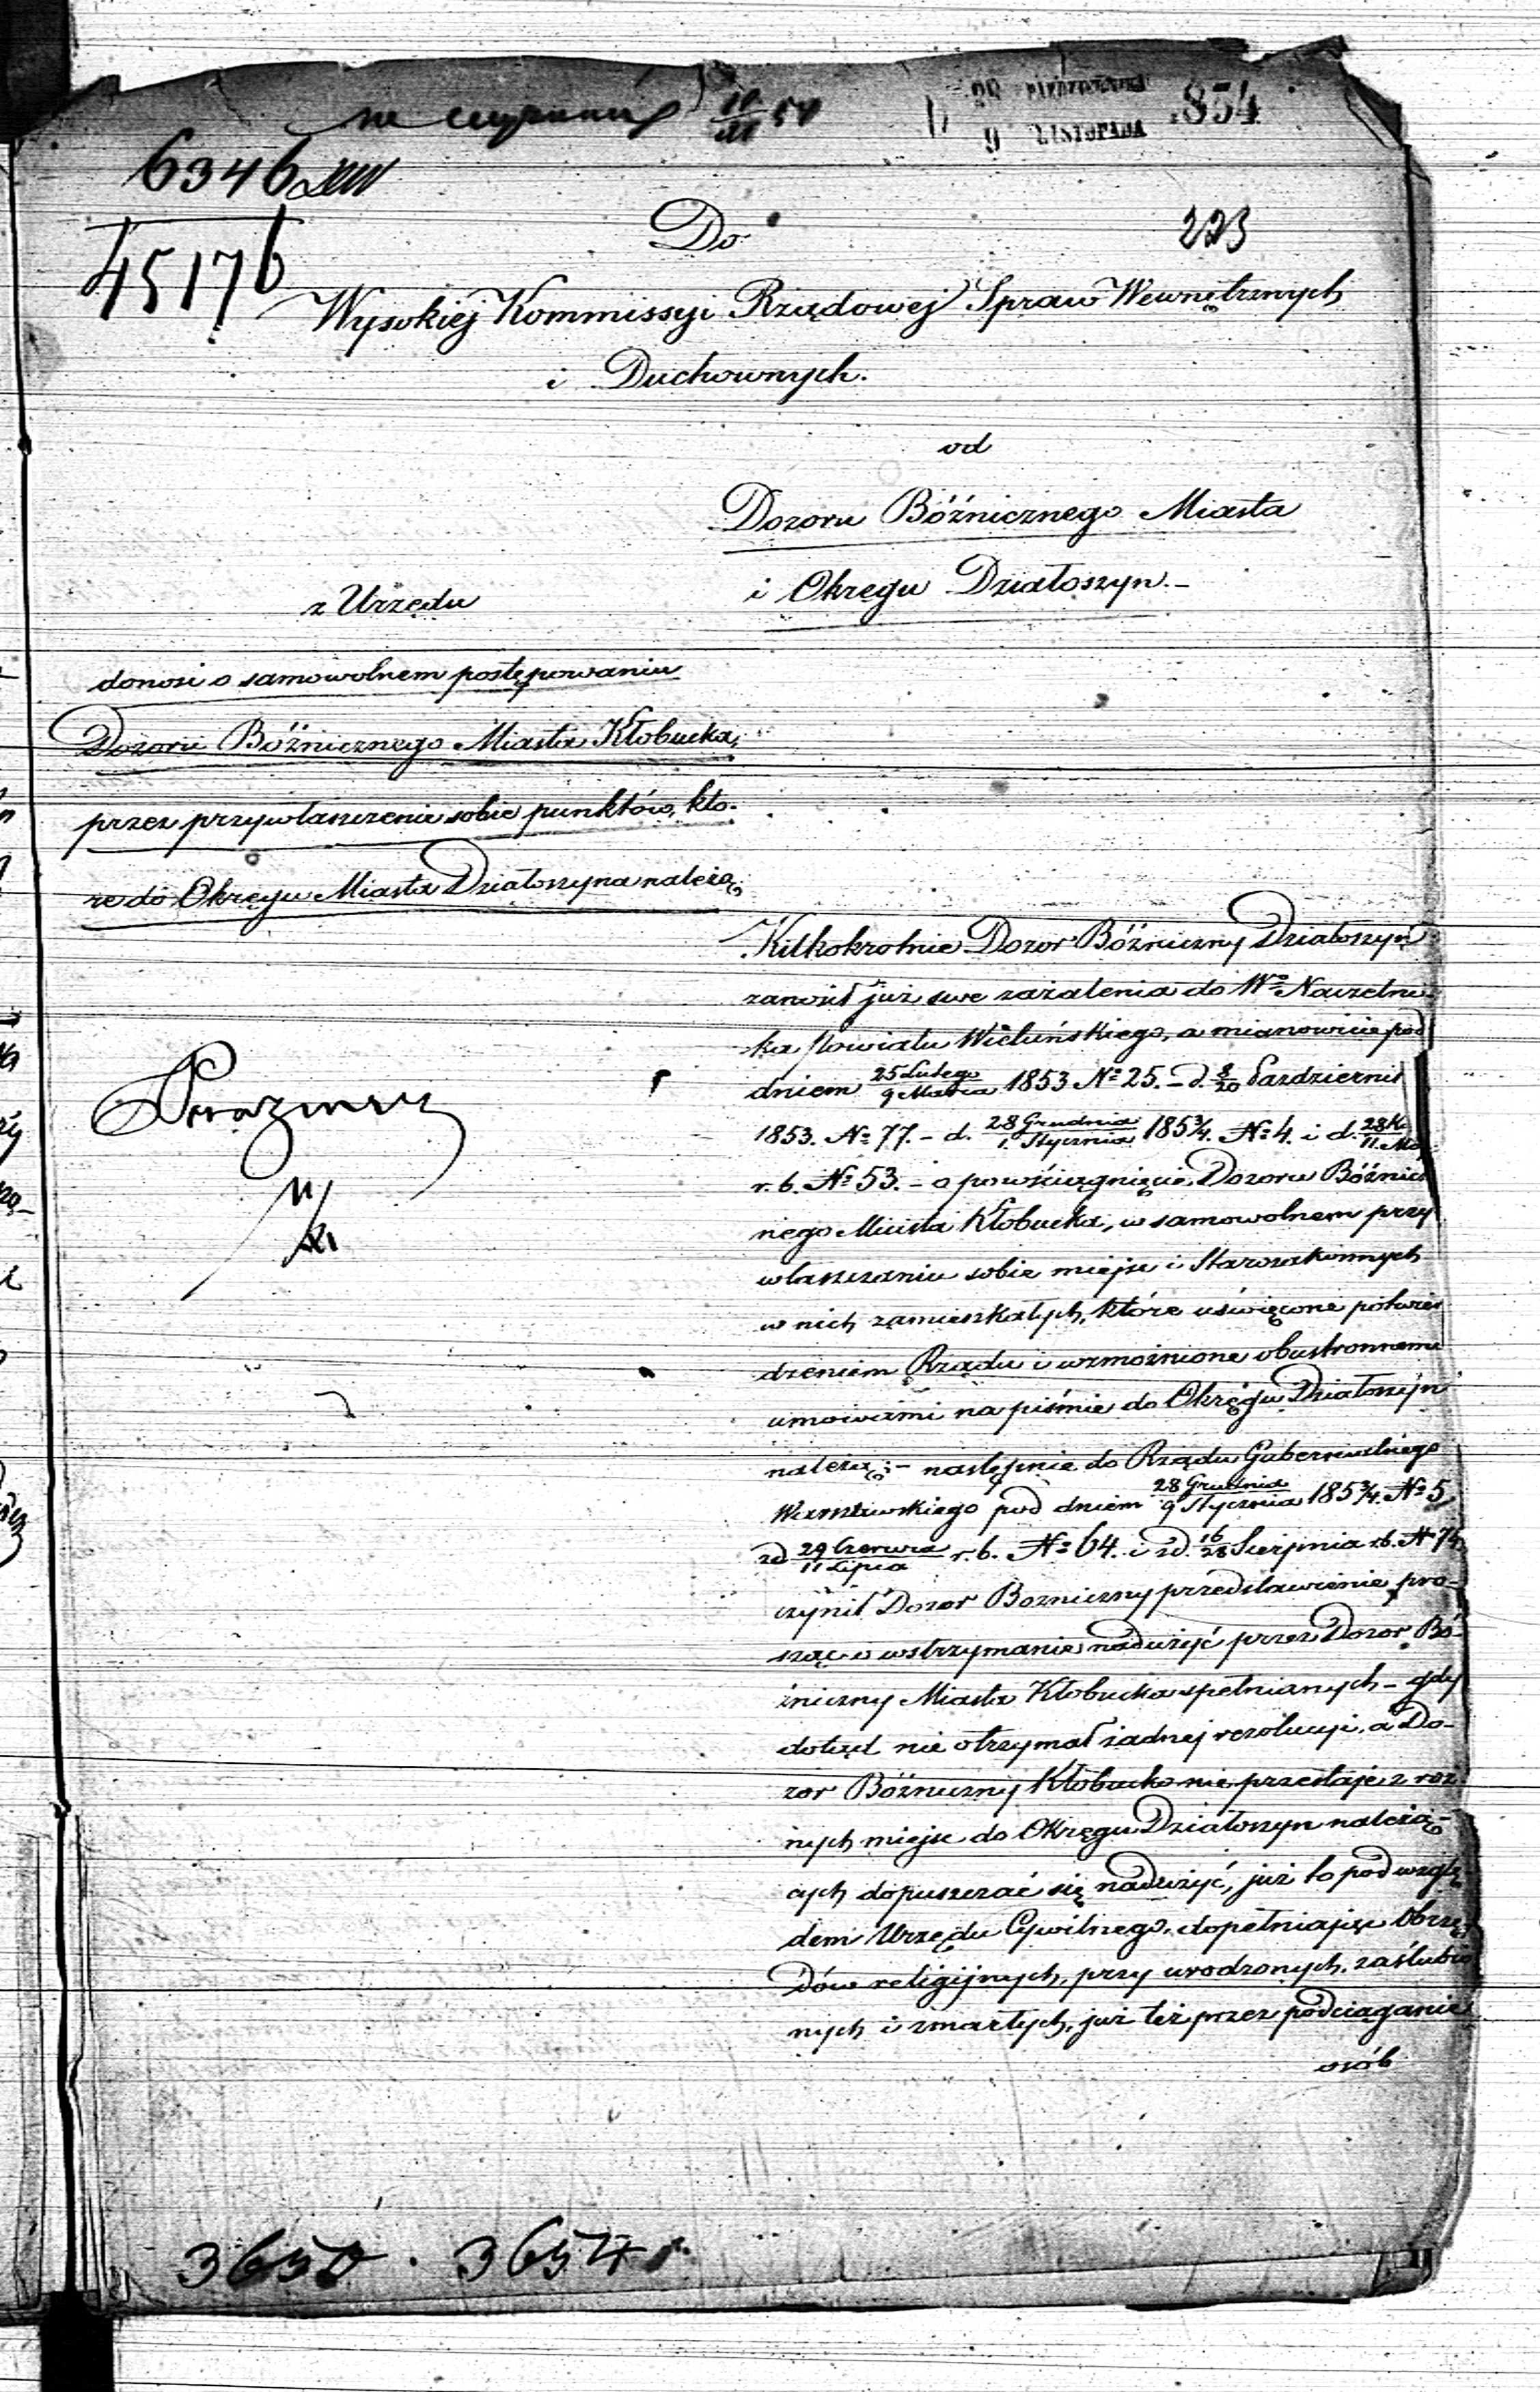 28 PAŹDZIERNIKA
9 LISTOPADA
854
6346
45176
223
Do
Wysokiej Kommissyi Rządowej Spraw Wewnętrznych
i Duchownych.
od
Dozoru Bóźnicznego Miasta
i Okręgu Działoszyn.–
z Urzędu
donosi o samowolnem postępowaniu
Dozoru Bóżnicznego Miasta Kłobucka,
przez przywłaszczenie sobie punktów, któ-
re do Okręgu Miasta Działoszyna należą
Kilkokrotnie Dozor Bóżniczny Działoszyn
zanosił już swe zażalenia do Wo Naczelni
ka Powiatu Wieluńskiego, a mianowicie pod
dniem 25 Lutego/9 Marca 1853 No 25. – d. 8/20 Pazdziernik
1853. No 77. – d. 28 Grudnia/1. Stycznia 1853/4. No 4. i d. 28 K/11. Ma
r. b. No 53. – o powściągnięcie Dozoru Bóźnicz
nego Miasta Kłobucka, w samowolnem przy
właszczaniu sobie miejsc i Starozakonnych
w nich zamieszkałych, które uświęcone potwier
dzeniem Rządu i wzmożnione obustronnemi
umowami na piśmie do Okręgu Działoszyn
należą;– następnie do Rządu Gubernialnego
Warszawskiego pod dniem 28 Grudnia/9 Stycznia 1853/4. No 5,
zd 29 Czerwca/11 Lipca r. b. No 64. i zd. 16/28 Sierpnia r.b. No 74,
czynił Dozor Bozniczny przedstawienie, pro-
sząc o wstrzymanie nadużyć przez Dozor Bó-
żniczny Miasta Kłobucka spełnianych – gdy
dotąd nie otrzymał żadnej rezolucyi, a Do-
zor Bóżniczny Kłobucko nie przestaje z roż
nych miejsc do Okręgu Działoszyn należą-
cych dopuszczać się nadużyć, już to pod wzglę
dem Urzędu Cywilnego, dopełniając Obrzę
dów religijnych, przy urodzonych, zaślubio
nych i zmarłych, już też przez podciąganie
osób
3650 . 3654